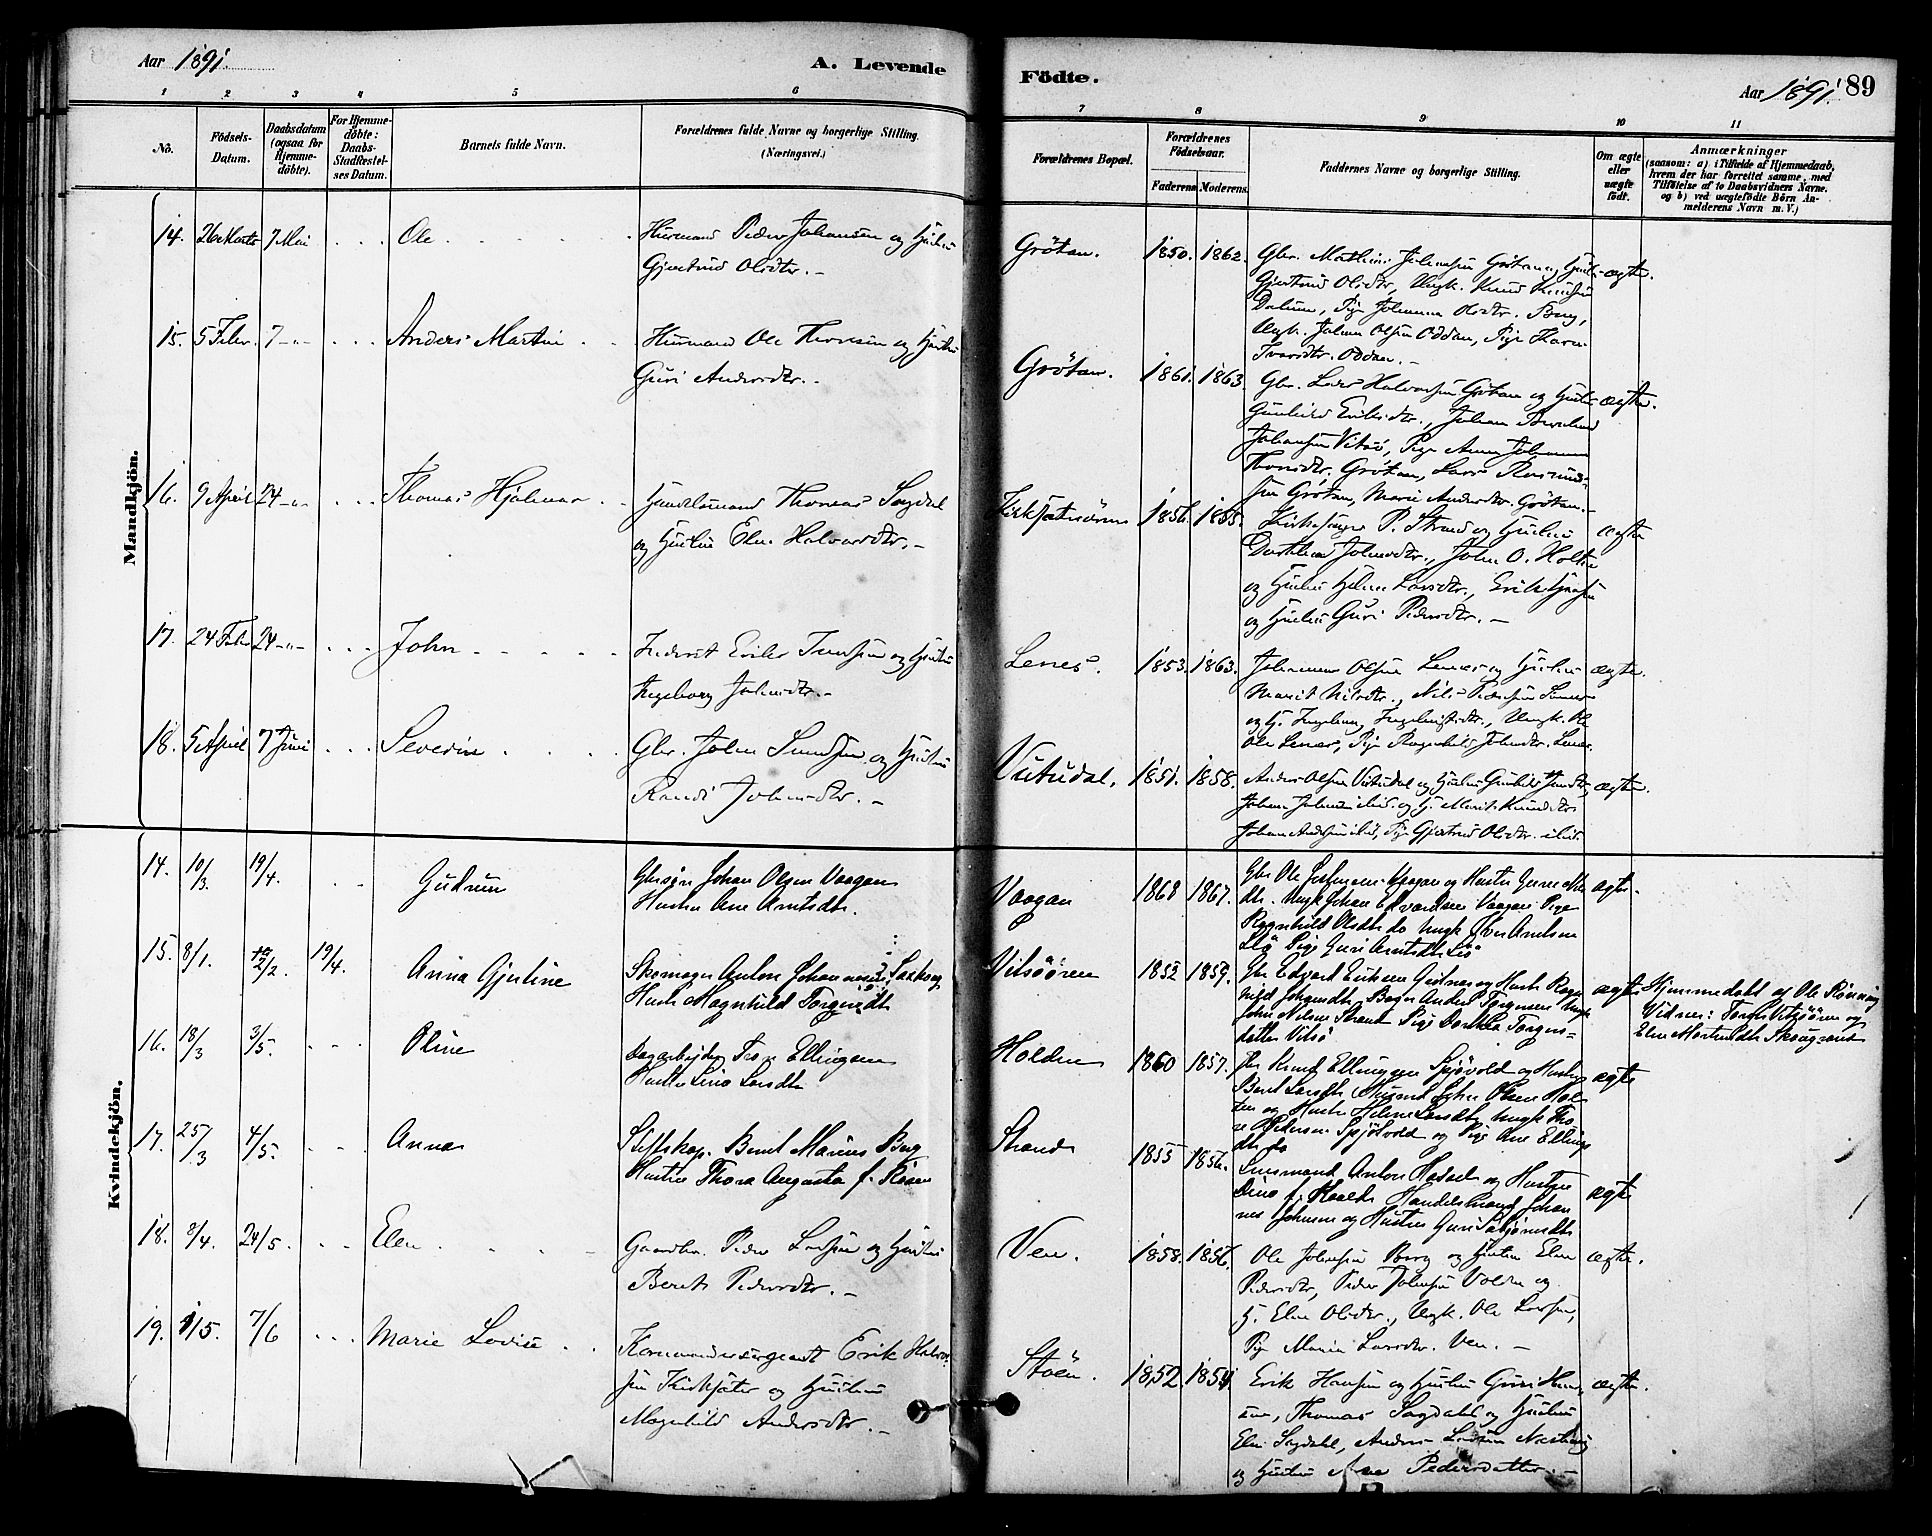 Aar 1891.
A. Levende
Födte.
Aar 1891. 89
1 2 3 4 5 6
7 8 9 10 11
No.
Födsels-
Datum.
Daabsdatum
(ogsaa for
Hjemme-
döbte).
For Hjemme-
döbte:
Daabs-
Stadfæstel-
ses Datum.
Barnets fulde Navn.
Forældrenes fulde Navne og borgerlige Stilling.
(Næringsvei.)
Forældrenes Bopæl.
Forældrenes
Födselsaar.
Faderens. Moderens.
Faddernes Navne og borgerlige Stilling.
Om ægte
eller
uægte
födt.
Anmærkninger
(saasom: a) i Tilfælde af Hjemmedaab,
hvem der har forrettet samme, med
Tilföielse af to Daabsvidners Navne.
og b) ved uægtefödte Börn An-
melderens Navn m. V.)
Mandkjön.
14. 26 Marts 7 Mai Ole
Huusmand Peder Johansen og Hustru
Gjertrud Olsdtr. -
Grötan. 1850. 1862. ægte.
Gbr. Mathias Johnsen Grötan og Hustru
Gjertrud Olsdtr., Ungk. Knud Knudsen
Dalum, Pige Johanna Olsdtr. Berg,
Ungk. Johan Olsen Oddan, Pige Karn
Ivarsdtr. Oddan. -
15. 5 Febr. 7 -"- Anders Martin
Husmand Ole Thoresen og Hustru
Guri Andersdtr. -
Grötan. 1861. 1863. ægte.
Gbr. Lars Halvorsen Grötan og Hustru
Gunhild Eriksdtr., Johan Bernhard
Johansen Vitsö, Pige Anna Johanna
Thoresdtr. Grötan, Lars Rasmus-
sen Grötan, Marie Andersdtr. Grötan. -
16. 9 April 24 -"- Thomas Hjalmar
Handelsmand Thomas Sagdal
og Hustru Elen Halvorsdtr. -
1856. 1855. ægte
Kirkesanger P. Strand og Hustru
Dorthea Johnsdtr., John O. Holten
og Hustru Helene Larsdtr., Erik Hansen
og Hustru Guri Pedersdtr. -
17. 24 Febr 24 -"- John
Inderst Erik Iversen og Hustru
Ingeborg Johnsdtr. -
Lenes. 1853. 1863. ægte.
Johannes Olsen Lenes og Hustru
Marit Nilsdtr., Nils Pedersen Lenes
og H. Ingeborg Ingebrigtsdtr., Ungk. Ole
Ole Lenes, Pige Ragnhild Johnsdtr. Lenes
18. 5 April 7 Juni Severin
Gbr. John Simonsen og Hustru
Randi Johnsdtr. -
Vutudal. 1851. 1858. ægte.
Anders Olsen Vutudal og Hustru Gunhild Jonsdtr,
Johan Johnsen ibid og H. Marit Knudsdtr
Johan Andersen ibid, Pige Gjertrud Olsdtr. ibid.
Kvindekjön.
14. 10/3 19/4 Gudrun
Gbrsön Johan Olsen Vaagan
Hustru Ane Arntsdtr.
Vaagan 1868 1867. ægte.
Gbr Ole Johnsen Vaagan og Hustru Gurine Nils
dtr. Ungk Johan Edvardsen Vaagan Pige
Ragnhild Olsdtr do Ungk Iver Arntsen
Slö Pige Guri Arntsdtr Slö
15. 8/1. 2/2. 19/4. Anna Gjurine
Skomager Anton Johannesen Saxhaug
Hustru Magnhild Torgersdtr
Vitsöören 1853 1859. ægte
Gbr Edvard Eriksen Gidnes og Hustru Ragn
hild Johansdtr Bager Anders Torgersen Ungk
John Nilsen Strand Pige Dorthea Torgers-
datter Vitsö
Hjemmedöbt af Ole Rönning
Vidner: Torger Vitsöören og
Elen Mortensdtr Skaugrand
16. 18/3 3/5. Oline
Dagarbejder Tore Ellingsen
Hustru Lina Larsdtr
Holden 1860 1857. ægte
Gbr Knud Ellingsen Spjövold og Hustru
Berit Larsdtr Husmd John Olsen Hol
ten og Hustru Helene Larsdtr Ungk Tho
re Pedersen Spjötvold og Pige Ane Ellings
dtr do
17. 25/3 4/5. Anna
Stiftskap. Bernt Marius Berg
Hustru Thora Augusta f. Rosen
Strand 1855 1856. ægte
Lensmand Anton Hassel og Hustru
Dina f. Handelsmand Johan
nes Johnsen og Hustru Guri Sakjornsdtr
18. 8/4. 24/5. Elen
Gaardbr. Peder Larsen og Hustru
Berit Pedersdtr. -
Ven. 1858. 1856. ægte.
Ole Johnsen Berg og Hustru Elen
Pedersdtr, Peder Johnsen Volden og
H. Elen Olsdtr., Ungk. Ole Larsen,
Pige Maria Larsdtr. Ven. -
19. 1/5. 7/6 Marie Lovise
Kommandersergeant Erik Halvor
sen Kirksæter og Hustru
Magnhild Andersdtr. -
Stoen. 1852. 1854. ægte.
Erik Hansen og Hustru Guri Han-
sen, Thomas Sagdahl og Hustru
Elen Sagdahl, Anders Larsen
og Hustru Ane Pedersdatter. -